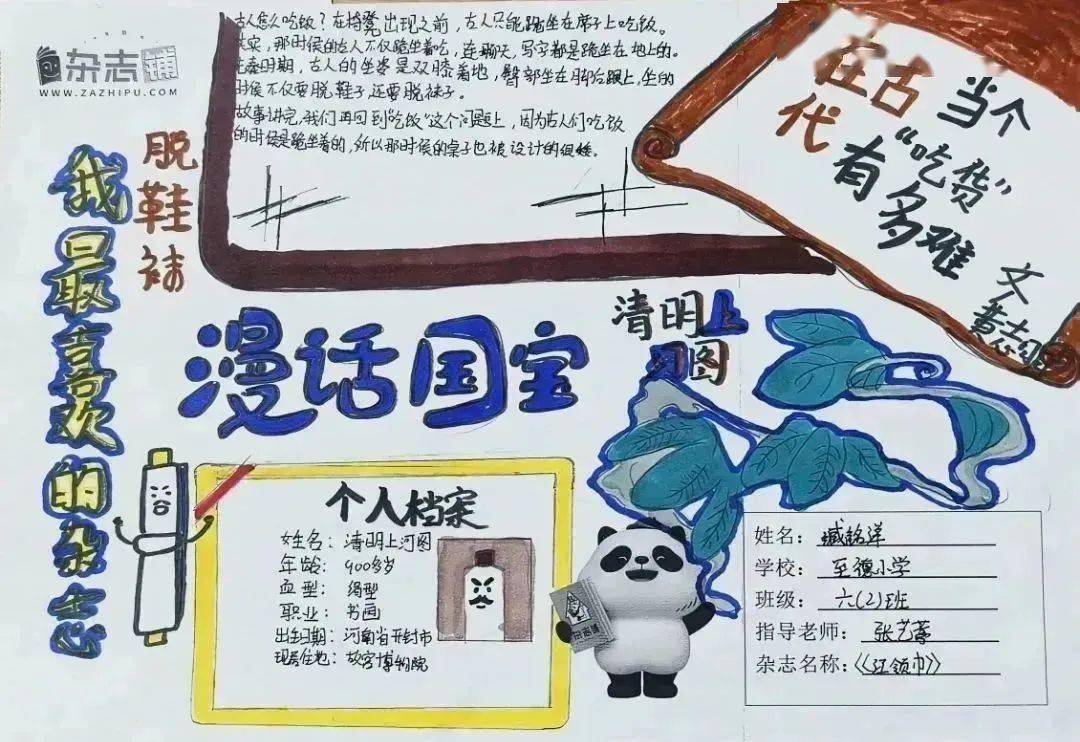 杂志铺
WWW.ZAZHIPU.COM
古人怎么吃饭？在椅凳出现之前，古人只能跪坐在席子上吃饭。
其实，那时候的古人不仅跪坐着吃，连聊天，写字都是跪坐在地上的。
先秦时期，古人的坐姿是双膝着地，臀部坐在脚后跟上，坐的
时候不仅要脱鞋子还要脱袜子。
故事讲完，我们再回到“吃饭”这个问题上，因为古人们吃饭
的时候是跪坐着的，所以那时候的桌子也被设计的很矮。
在古代
当个
“吃货”
有多难
文
脱鞋袜
我最喜欢的杂志
漫话国宝
清明上
河图
个人档案
姓名：清明上河图
年龄：900多岁
血型：绢型
职业：书画
出生日期：河南省开封市
现居住地：故宫博物院
姓名：臧铭洋
学校：至德小学
班级：六(2)班
指导老师：张艺
杂志名称：《红领巾》